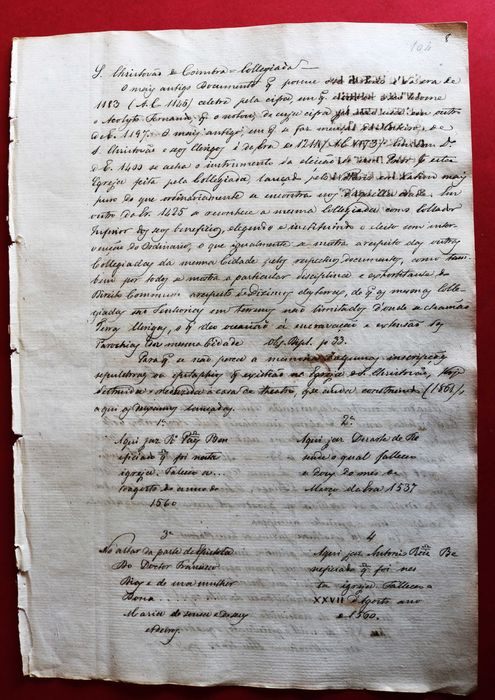 104
S. Christovão de Coimbra - Collegiada
O mais antigo Documento q̃ possue he de Era de
1183 (A.C. 1145) celebre pela cifra em q̃
o Acolyto Fernando, q̃ o notou, de cuja cifra
d'E. 1197. O mais antigo em q̃ se faz menção
S. Christovão e seus Clerigos é de Era de 1211 (A.C. 1173)
E. 1433 se acha o instrumento da eleição
Igreja feita pela Collegiada, lançado em Latim mais
puro do que ordinariamente se encontra nos d'aquella idade. Em
outro da Er. 1425 se reconhece a mesma Collegiada como Collador
Inferior dos seus beneficios, elegendo e instituindo o eleito com inter-
venção do Ordinario, o que igualmente se mostra a respeito das outras
Collegiadas da mesma Cidade pelos respectivos documentos, como tam-
bem por todos se mostra a particular disciplina e exorbitante do
Direito Commum a respeito de Dizimos das terras, de q̃ as mesmas Colle-
giadas são Senhorias em terrenos não limitados d'onde se chamão
Terras Clerigas, e q̃ deo occasião á encravação e extensão das
Parochias em mesma Cidade Obs. Dipl. p. 53.
Para q̃ se não perca a memoria d'algumas inscripções
sepulcraes ou epitaphios q̃ existião na Egreja de S. Christovão, hoje
destruida e reduzida a casa de theatro, que anda construindo (1861),
aqui as deixamos lançadas.
1ª
Aqui jaz Rº Vaz Ben
eficiado q̃ foi nesta
igreja. Falleceo a...
d'agosto do anno de
1560
2ª
Aqui jaz Duarte de Re
sende o qual falleceo
a doze do mes de
Março da Era 1537
3ª
No altar da parte da Epistola
Do Doctor Francisco
Roz e de sua mulher
Dona...
Maria de sousa e de seus
erdeiros
4
Aqui jaz Antonio Roiz Be
neficiado q̃ foi nes
ta igreja. Falleceo a
XXVII d'Agosto ano
de 1560.